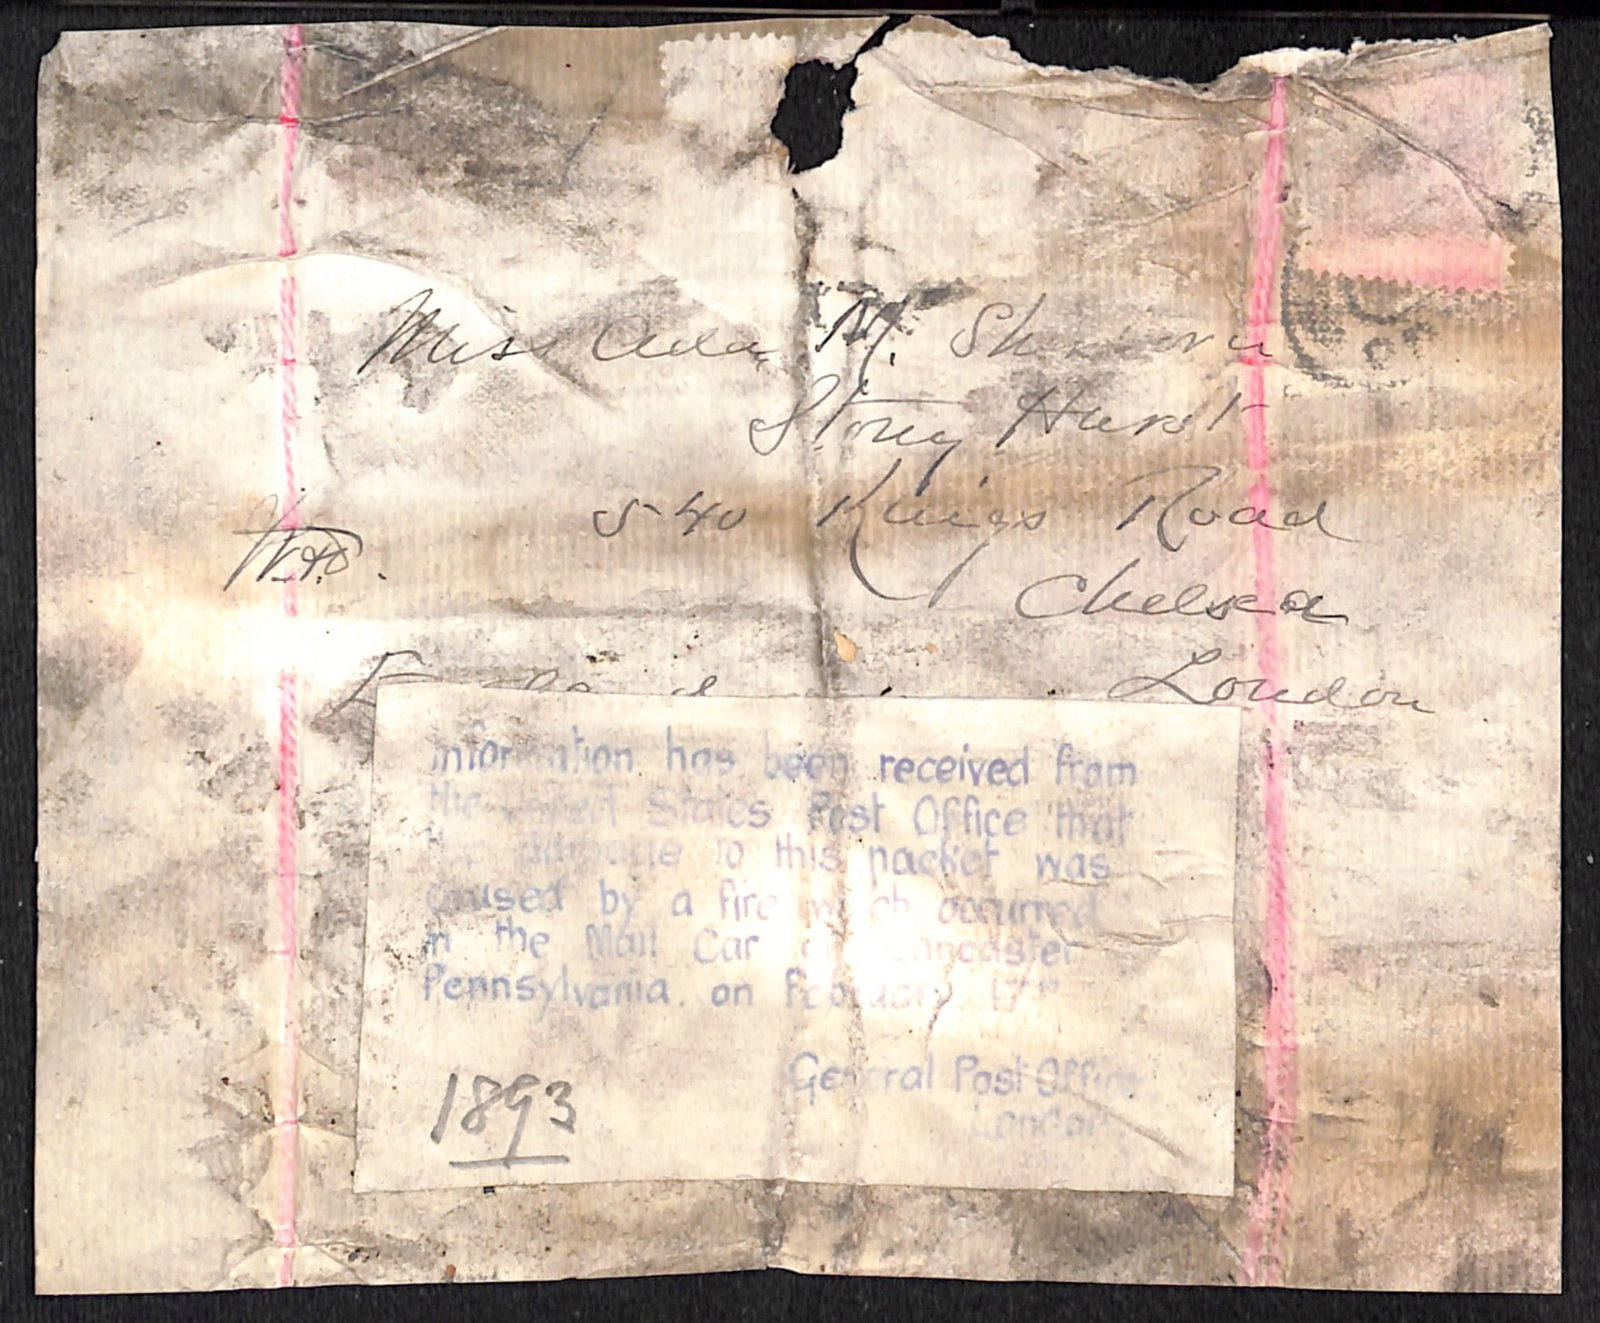 Miss Ada M.
Stony Hurst
540 Kings Road
Chelsea
London
Information has been received from
the United States Post Office that
the damage to this packet was
caused by a fire which occurred
in the Mail Car at Lancaster
Pennsylvania. on February 17th
General Post Office
London
1893